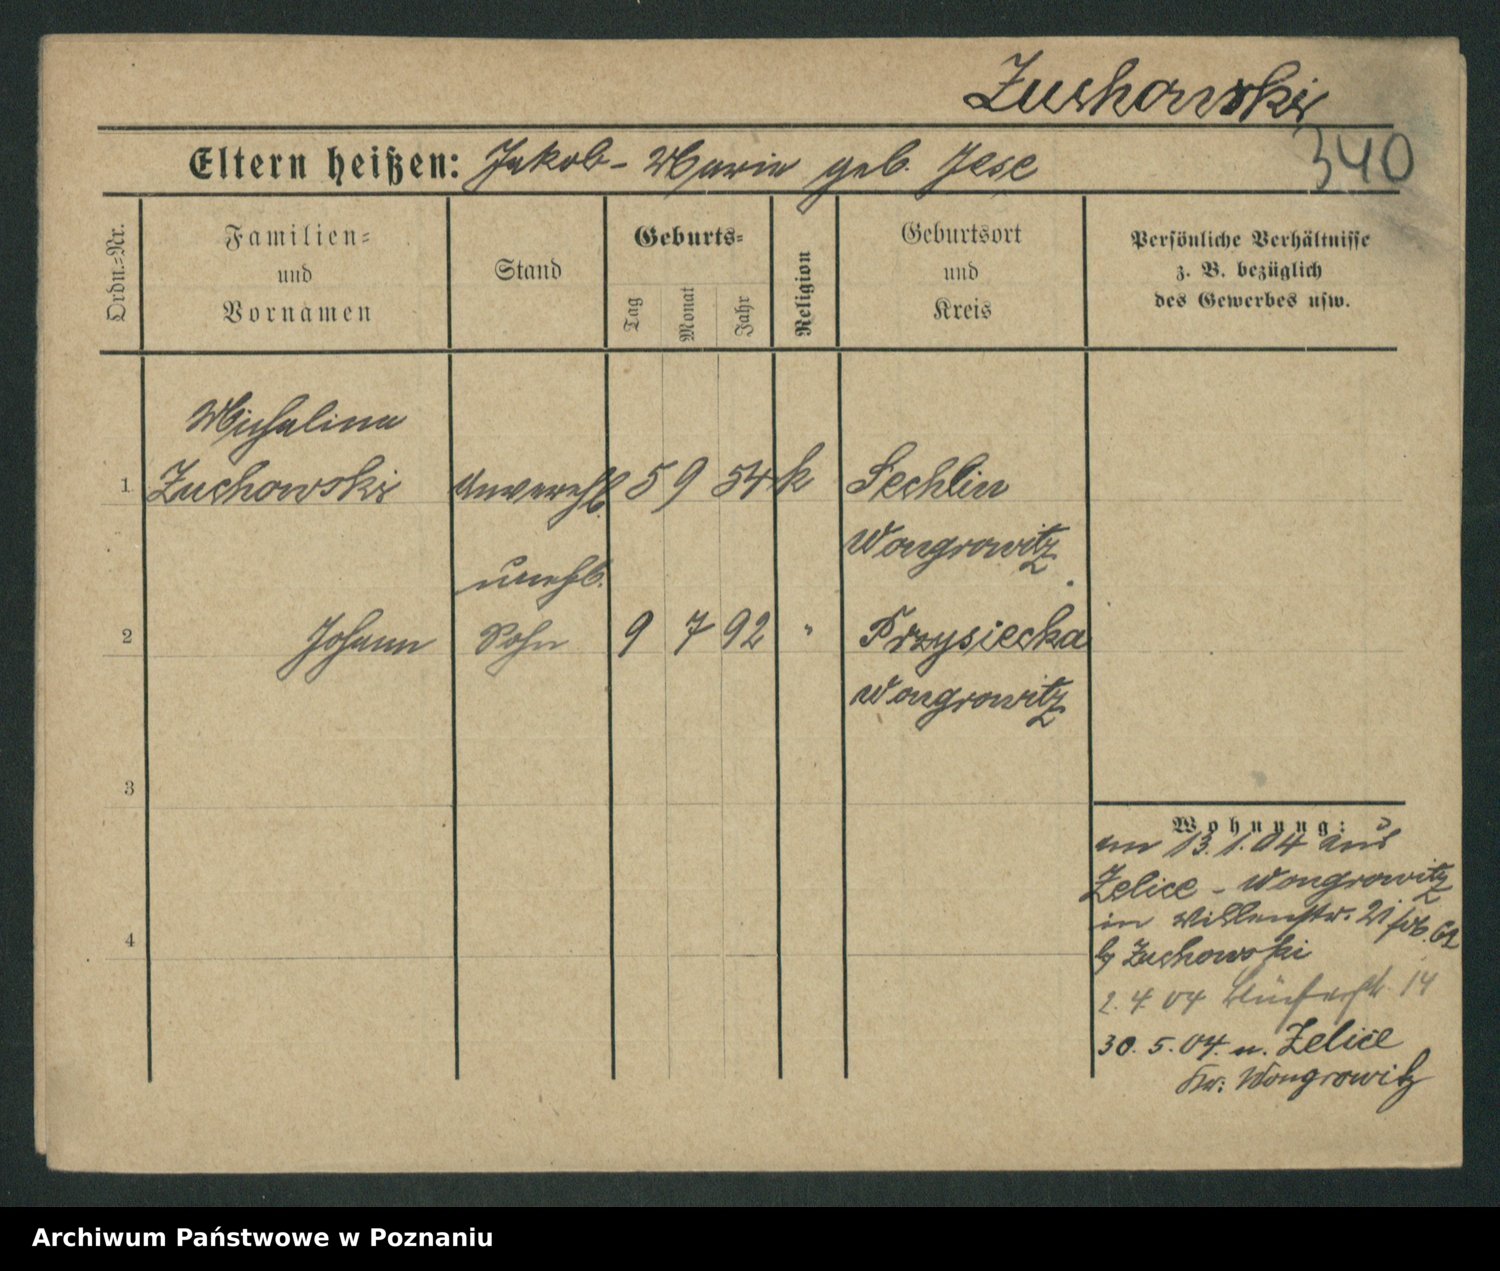 Zuchowski
340
Eltern heißen: Jakob - Maria geb. Jese
Ordn.-Nr.
Familien-
und
Vornamen
Stand
Geburts-
Tag
Monat
Jahr
Religion
Geburtsort
und
Kreis
Persönliche Verhältnisse
z. B. bezüglich
des Gewerbes usw.
Michalina
1 Zuchowski unverehl. 5 9 54 k Sechlin
Wongrowitz
unehl.
2 Johann Sohn 9 7 92 " Przysiecka
Wongrowitz
3
4
Wohnung:
am 13.1.04 aus
Zelice - Wongrowitz
in 21
b/ Zuchowski
2. 4. 04 14
30. 5. 04. n. Zelice
Kr: Wongrowitz
Archiwum Państwowe w Poznaniu